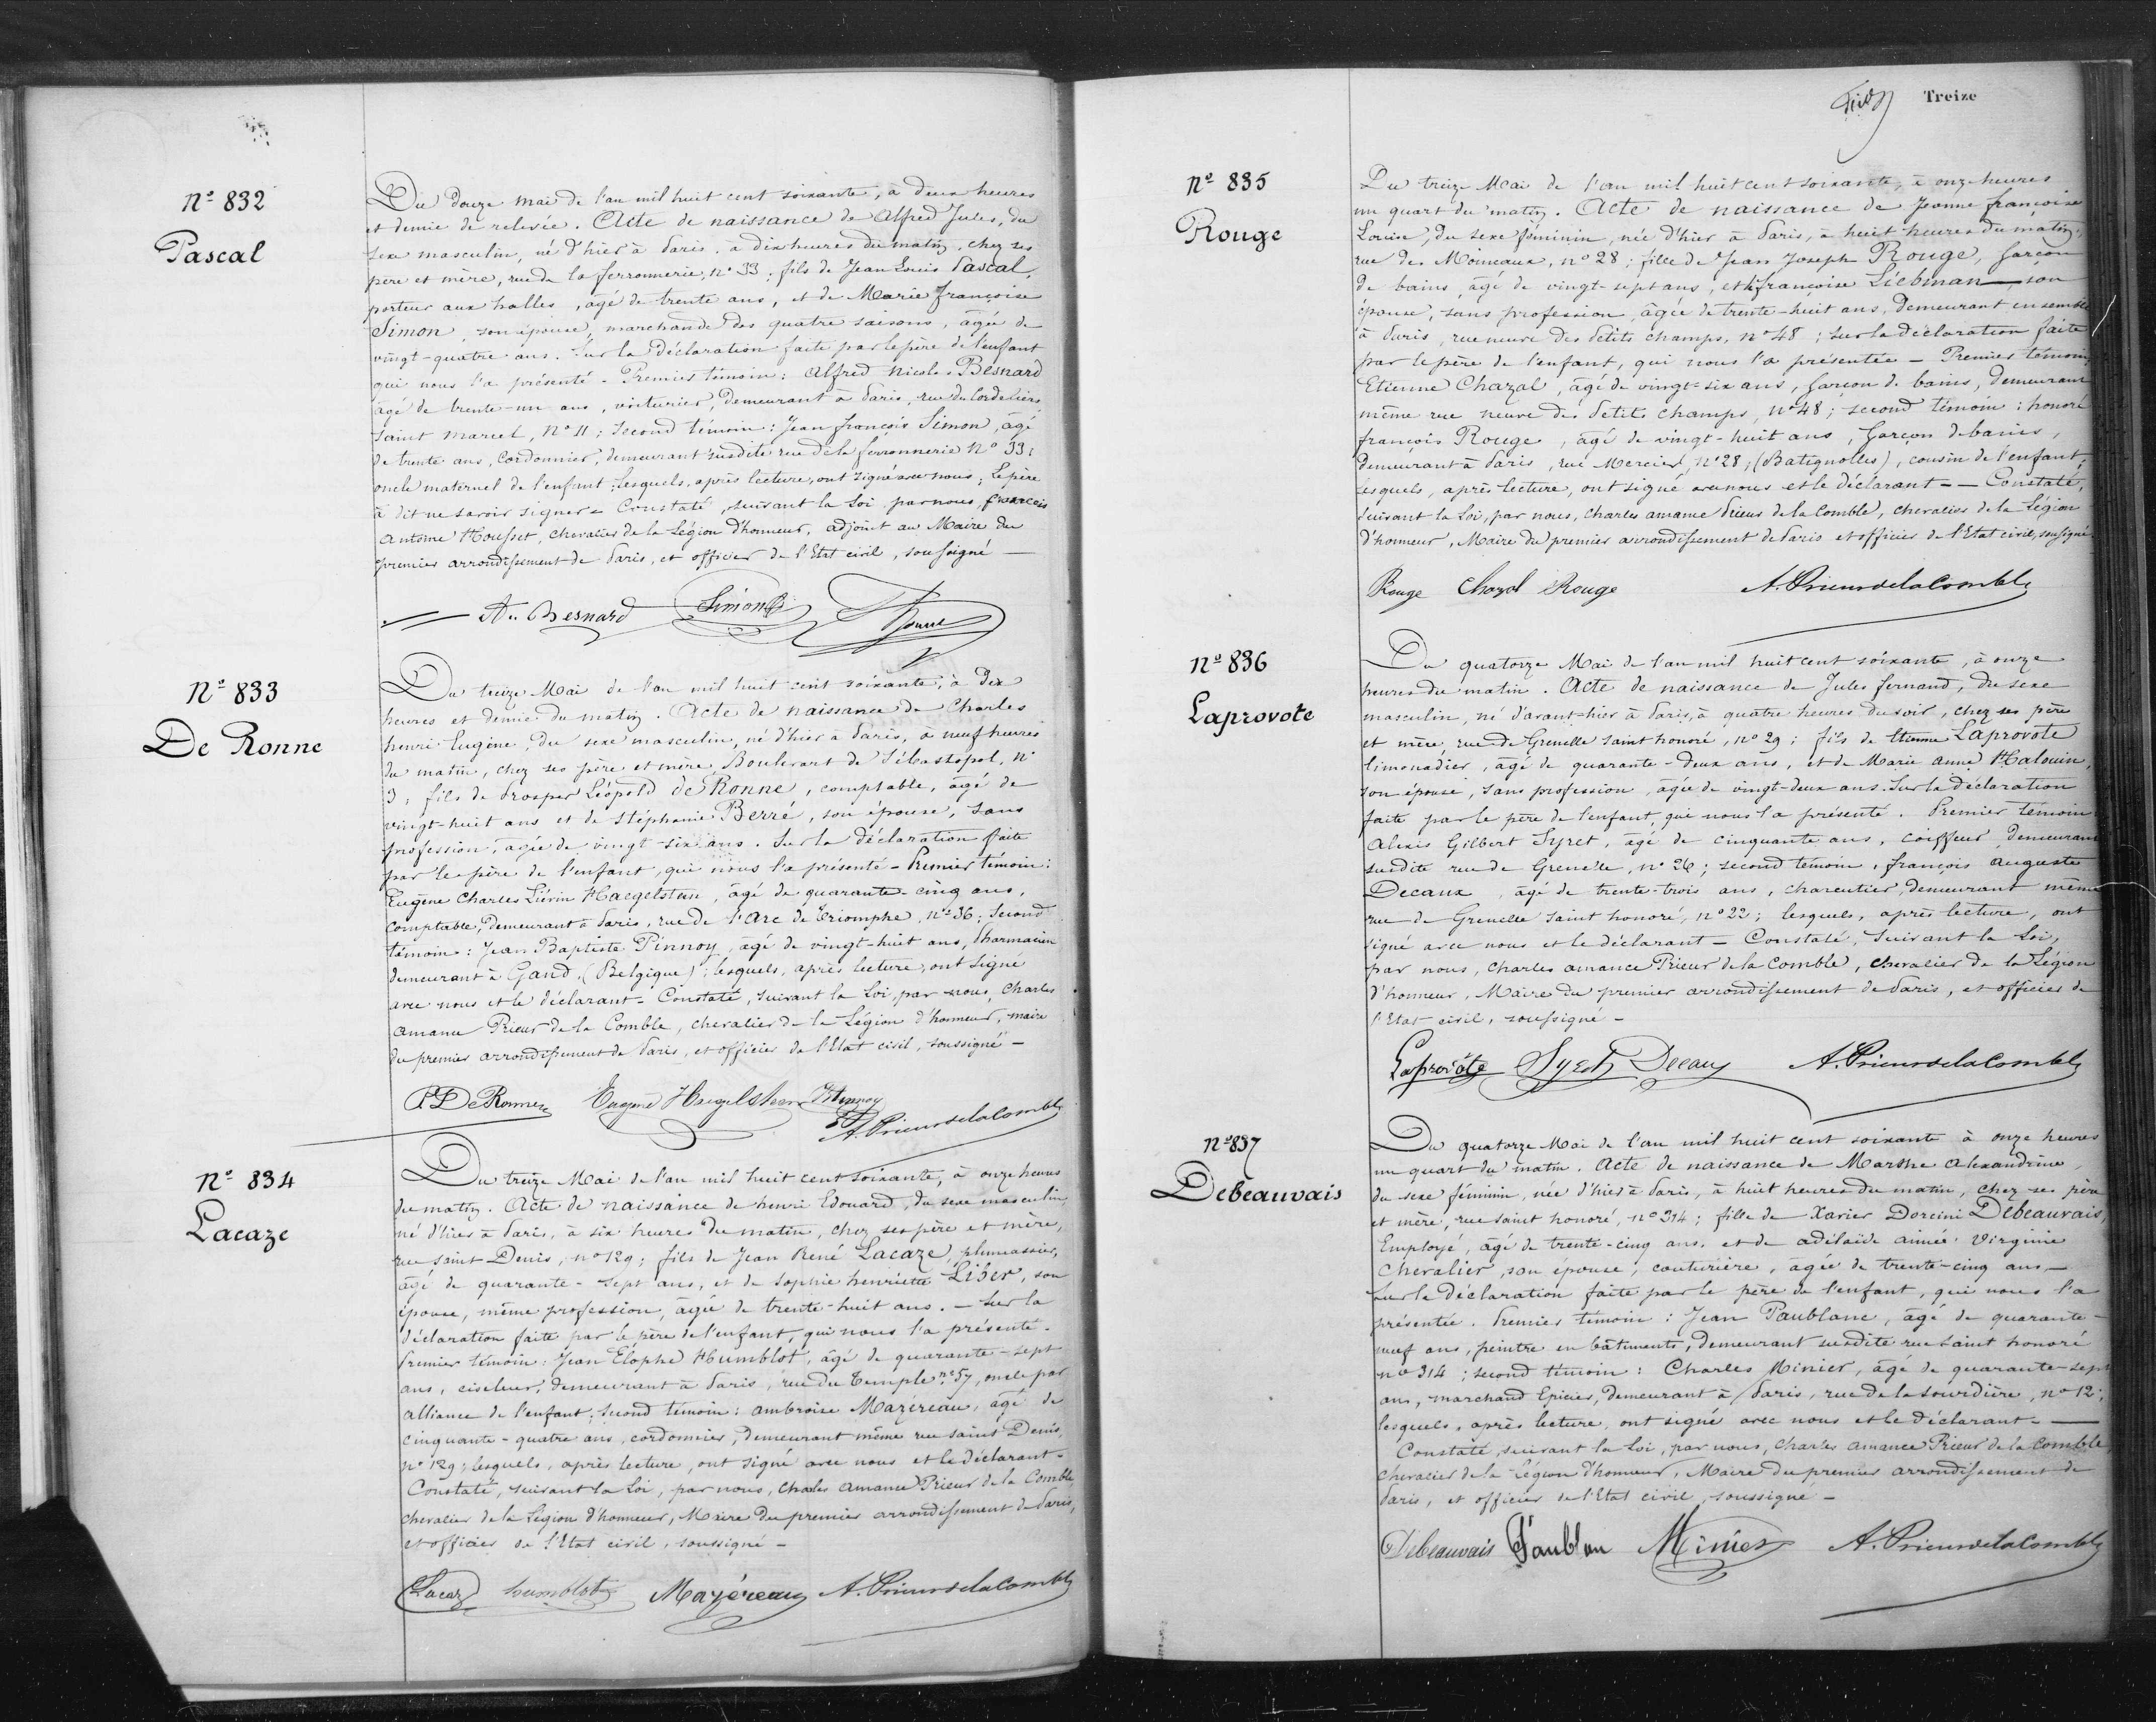 Nº 832
Pascal
Du douze mai de l'an mil huit cent soixante, à deux heures
et demie de relevée. Acte de naissance de Alfred Jules, du
sexe masculin, né d'hier à Paris, à dix heures du matin, chez ses
père et mère, rue de la ferronnerie, nº 33; fils de Jean Louis Pascal,
porteur aux halles, âgé de trente ans, et de Marie Françoise
Simon, son épouse, marchande des quatre saisons, âgée de
vingt-quatre ans. Sur la Déclaration faite par le père de l'enfant
qui nous l'a présenté. Premier témoin: Alfred Nicolas Besnard
âgé de trente-un ans, voiturier, demeurant à Paris, rue des Cordelières
Saint Marcel, Nº 11; second témoin: Jean françois Simon, âgé
de trente ans, Cordonnier, demeurant susdite rue de la ferronnerie Nº 33;
oncle maternel de l'enfant; lesquels, après lecture, ont signé avec nous; le père
à dit ne savoir signer - Constaté, suivant la Loi par nous, françois
Antoine Housset, chevalier de la Légion d'honneur, adjoint au Maire du
premier arrondissement de Paris, et officier de l'Etat civil, soussigné
A.. Besnard Simon
Nº 833
De Ronne
Du treize Mai de l'an mil huit cent soixante, à dix
heures et demie du matin. Acte de naissance de Charles
henri Eugène, du sexe masculin, né d'hier à Paris, à neuf heures
du matin, chez ses père et mère, Boulevart de Sébastopol, nº
3; fils de Prosper Léopold de Ronne, comptable, âgé de
vingt-huit ans et de Stéphanie Berré, son épouse, sans
profession, âgée de vingt-six ans. Sur la déclaration faite
par le père de l'enfant, qui nous l'a présenté - Premier témoin:
Eugène Charles Liévin Haegelsteen, âgé de quarante-cinq ans,
Comptable, demeurant à Paris, rue de l'Arc de Triomphe, nº 36; second
témoin: Jean Baptiste Pinnoy, âgé de vingt-huit ans, Pharmacien
demeurant à Gand, (Belgique); lesquels, après lecture, ont signé
avec nous et le déclarant - Constaté, suivant la Loi, par nous, Charles
Amance Prieur de la Comble, chevalier de la Légion d'honneur, maire
du premier arrondissement de Paris, et officier de l'Etat civil, soussigné -
P De Ronne Eugène Haegelsteen Pinnoy
A. Prieur de la Comble
Nº 834
Lacaze
Du treize Mai de l'an mil huit cent soixante, à onze heures
du matin. Acte de naissance de henri Edouard, du sexe masculin,
né d'hier à Paris, à six heures du matin, chez ses père et mère,
rue saint Denis, nº 129; fils de Jean René Lacaze, plumassier,
âgé de quarante-sept ans, et de Sophie henriette Liber, son
épouse, même profession, âgée de trente-huit ans. - Sur la
déclaration faite par le père de l'enfant, qui nous l'a présenté.
Premier témoin: Jean Elophe Humblot, âgé de quarante-sept
ans, ciseleur, demeurant à Paris, rue du Temple nº 57, oncle par
alliance de l'enfant; second témoin: ambroise Mazéreau, âgé de
cinquante-quatre ans, cordonnier, demeurant même rue saint Denis,
nº 129; lesquels, après lecture, ont signé avec nous et le déclarant -
Constaté, suivant la Loi, par nous, Charles Amance Prieur de la Comble,
chevalier de la Légion d'honneur, Maire du premier arrondissement de Paris,
et officier de l'Etat civil, soussigné -
Lacaze humblot Mazéreau A. Prieur de la Comble
Treize
Nº 835
Rouge
Du treize Mai de l'an mil huit cent soixante, à onze heures
un quart du matin. Acte de naissance de Jeanne françoise
Louise, du sexe féminin, née d'hier à Paris, à huit heures du matin,
rue des Moineaux, nº 28; fille de Jean Joseph Rouge, garçon
de bains, âgé de vingt-sept ans, et de françoise Liebman son
épouse, sans profession, âgée de trente-huit ans, demeurant ensemble
à Paris, rue neuve des Petits champs, nº 48; sur la déclaration faite
par le père de l'enfant, qui nous l'a présentée - Premier témoin,
Etienne Chazal, âgé de vingt-six ans, garçon de bains, demeurant
même rue neuve des Petits champs, nº 48; second témoin: honoré
françois Rouge, âgé de vingt-huit ans, garçon de bains,
demeurant à Paris, rue Mercier, nº 28, (Batignolles), cousin de l'enfant;
lesquels, après lecture, ont signé avec nous et le déclarant - - Constaté,
suivant la Loi, par nous, Charles amance Prieur de la Comble, chevalier de la Légion
d'honneur, Maire du premier arrondissement de Paris et officier de l'Etat civil, soussigné
Rouge Chazal Rouge A. Prieur de la Comble
Nº 836
Laprovote
Du quatorze Mai de l'an mil huit cent soixante, à onze
heures du matin. Acte de naissance de Jules fernand, du sexe
masculin, né d'avant-hier à Paris, à quatre heures du soir, chez ses père
et mère, rue de Grenelle saint honoré, nº 29; fils de Etienne Laprovote
limonadier, âgé de quarante-deux ans, et de Marie Anne Halouin,
son épouse, sans profession, âgée de vingt-deux ans. Sur la déclaration
faite par le père de l'enfant, qui nous l'a présenté. Premier témoin
Alexis Gilbert Syret, âgé de cinquante ans, coiffeur, demeurant
susdite rue de Grenelle, nº 26; second témoin, françois auguste
Decaux, âgé de trente-trois ans, charcutier, demeurant même
rue de Grenelle Saint honoré, nº 22; lesquels, après lecture, ont
signé avec nous et le déclarant - Constaté, suivant la Loi,
par nous, Charles amance Prieur de la Comble, chevalier de la Légion
d'honneur, Maire du premier arrondissement de Paris, et officier de
l'Etat civil, soussigné -
Laprovote Syret Decaux A. Prieur de la Comble
Nº 837
Debeauvais
Du quatorze Mai de l'an mil huit cent soixante à onze heures
un quart du matin. Acte de naissance de Marthe Alexandrine,
du sexe féminin, née d'hier à Paris, à huit heures du matin, chez ses père
et mère, rue saint honoré, nº 314; fille de Xavier Dorcini Debeauvais,
Employé, âgé de trente-cinq ans, et de adélaïde aimée Virginie
Chevalier, son épouse, couturière, âgée de trente-cinq ans, -
Sur la Déclaration faite par le père de l'enfant, qui nous l'a
présentée. Premier témoin: Jean Paublanc, âgé de quarante-
neuf ans, peintre en bâtiments, demeurant susdite rue saint honoré
nº 314; second témoin: Charles Minier, âgé de quarante-sept
ans, marchand Epicier, demeurant à Paris, rue de la sourdière, nº 12;
lesquels, après lecture, ont signé avec nous et le déclarant -
Constaté, suivant la Loi, par nous, Charles amance Prieur de la Comble,
Chevalier de la Légion d'honneur, Maire du premier arrondissement de
Paris, et officier de l'Etat civil, soussigné -
Debeauvais Paublan Minier A. Prieur de la Comble